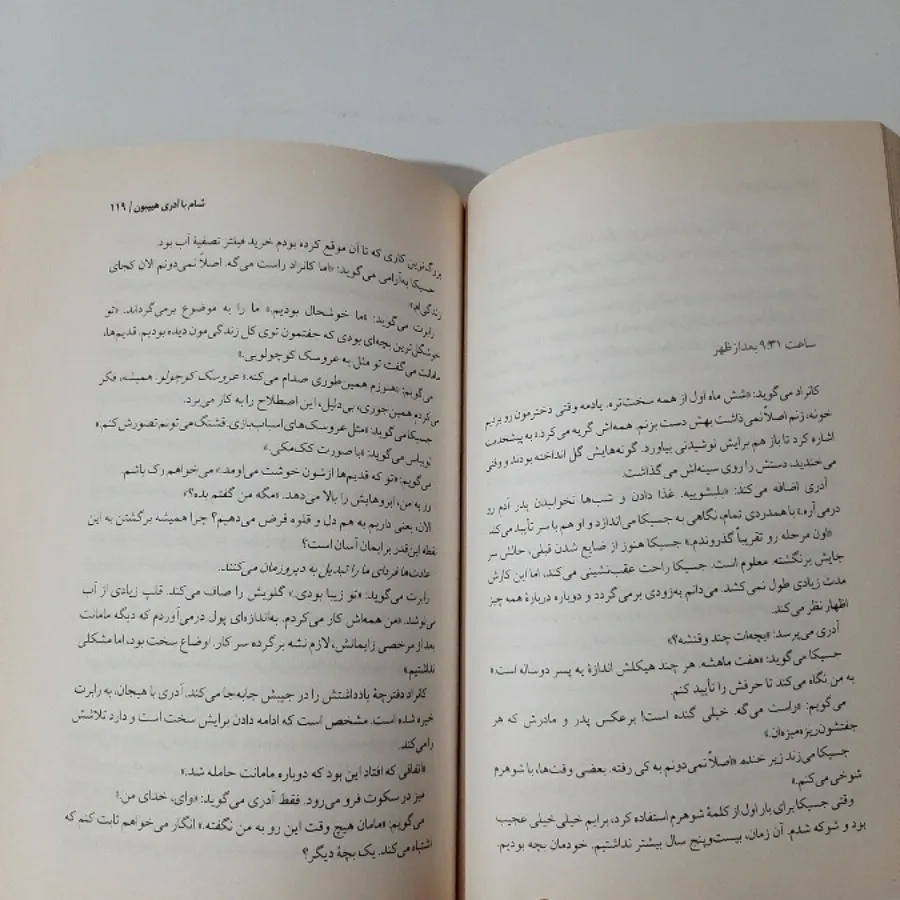 ساعت ۹:۳۱ بعدازظهر
کانراد می‌گوید: «شش ماه اول از همه سخت‌تره. یادمه وقتی دخترمون رو بردیم
خونه، زنم اصلاً نمی‌ذاشت بهش دست بزنم. همه‌اش گریه می‌کرد.» به پیشخدمت
اشاره کرد تا باز هم برایش نوشیدنی بیاورد. گونه‌هایش گل انداخته بودند و وقتی
می‌خندید، دستش را روی سینه‌اش می‌گذاشت.
آدری اضافه می‌کند: «بلبشوییه. غذا دادن و شب‌ها نخوابیدن پدر آدم رو
درمی‌آره.» با همدردی تمام، نگاهی به جسیکا می‌اندازد و او هم با سر تأیید می‌کند.
«اون مرحله رو تقریباً گذروندم.» جسیکا هنوز از ضایع شدن قبلی، حالش سر
جایش برنگشته. معلوم است. جسیکا راحت عقب‌نشینی می‌کند، اما این کارش
مدت زیادی طول نمی‌کشد. می‌دانم به‌زودی برمی‌گردد و دوباره دربارهٔ همه چیز
اظهار نظر می‌کند.
آدری می‌پرسد: «بچه‌ات چند وقتشه؟»
جسیکا می‌گوید: «هفت ماهشه. هر چند هیکلش اندازهٔ یه پسر دوساله است.»
به من نگاه می‌کند تا حرفش را تأیید کنم.
می‌گویم: «راست می‌گه. خیلی گنده است! برعکس پدر و مادرش که هر
جفتشون ریزه‌میزه‌ان.»
جسیکا می‌زند زیر خنده. «اصلاً نمی‌دونم به کی رفته. بعضی وقت‌ها، با شوهرم
شوخی می‌کنم.»
وقتی جسیکا برای بار اول از کلمهٔ شوهرم استفاده کرد، برایم خیلی خیلی عجیب
بود و شوکه شدم. آن زمان، بیست‌وپنج سال بیشتر نداشتیم. خودمان بچه بودیم.
شام با آدری هپبورن / ۱۱۹
بزرگ‌ترین کاری که تا آن موقع کرده بودم خرید فیلتر تصفیهٔ آب بود.
جسیکا به‌آرامی می‌گوید: «اما کانراد راست می‌گه. اصلاً نمی‌دونم الان کجای
زندگی‌ام.»
رابرت می‌گوید: «ما خوشحال بودیم.» ما را به موضوع برمی‌گرداند. «تو
خوشگل‌ترین بچه‌ای بودی که جفتمون توی کل زندگی‌مون دیده بودیم. قدیم‌ها،
مامانت می‌گفت تو مثل یه عروسک کوچولویی.»
می‌گویم: «هنوزم همین‌طوری صدام می‌کنه.» عروسک کوچولو. همیشه، فکر
می‌کردم همین‌جوری، بی‌دلیل، این اصطلاح را به کار می‌برد.
جسیکا می‌گوید: «مثل عروسک‌های اسباب‌بازی. قشنگ می‌تونم تصورش کنم.»
توبیاس می‌گوید: «با صورت کک‌مکی.»
می‌گویم: «تو که قدیم‌ها ازشون خوشت می‌اومد.» می‌خواهم رک باشم.
رو به من، ابروهایش را بالا می‌دهد. «مگه من گفتم بده؟»
الان، یعنی داریم به هم دل و قلوه قرض می‌دهیم؟ چرا همیشه برگشتن به این
نقطه این‌قدر برایمان آسان است؟
عادت‌ها فردای ما را تبدیل به دیروزمان می‌کنند.
رابرت می‌گوید: «تو زیبا بودی.» گلویش را صاف می‌کند. قلپ زیادی از آب
می‌نوشد. «من همه‌اش کار می‌کردم. به‌اندازه‌ای پول درمی‌آوردم که دیگه مامانت
بعد از مرخصی زایمانش، لازم نشه برگرده سر کار. اوضاع سخت بود، اما مشکلی
نداشتیم.»
کانراد دفترچهٔ یادداشتش را در جیبش جابه‌جا می‌کند. آدری با هیجان، به رابرت
خیره شده است. مشخص است که ادامه دادن برایش سخت است و دارد تلاشش
را می‌کند.
«اتفاقی که افتاد این بود که دوباره مامانت حامله شد.»
میز در سکوت فرو می‌رود. فقط آدری می‌گوید: «وای، خدای من.»
می‌گویم: «مامان هیچ وقت این رو به من نگفته.» انگار می‌خواهم ثابت کنم که
اشتباه می‌کند. یک بچهٔ دیگر؟